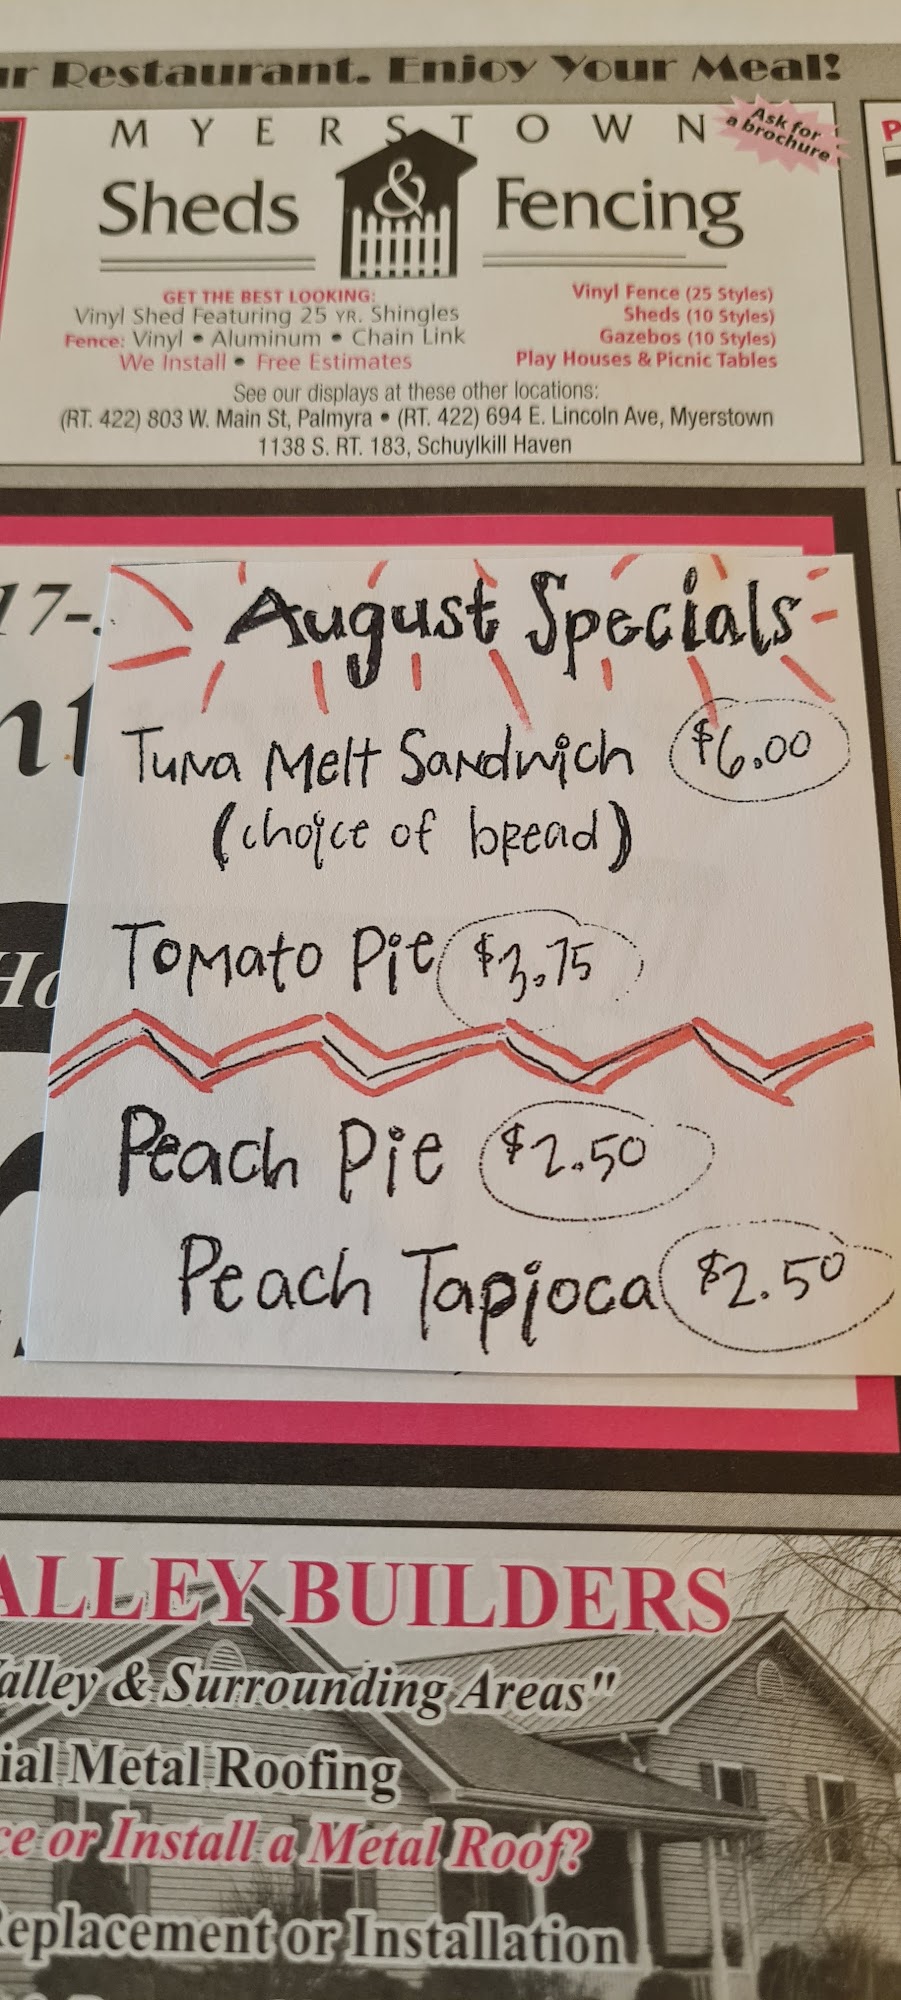 Restaurant. Enjoy Your Meal!
MYERSTOWN
Ask for
a brochure
Sheds & Fencing
GET THE BEST LOOKING:
Vinyl Shed Featuring 25 YR. Shingles
Fence: Vinyl • Aluminum • Chain Link
We Install • Free Estimates
Vinyl Fence (25 Styles)
Sheds (10 Styles)
Gazebos (10 Styles)
Play Houses & Picnic Tables
See our displays at these other locations:
(RT. 422) 803 W. Main St, Palmyra • (RT. 422) 694 E. Lincoln Ave, Myerstown
1138 S. RT. 183, Schuylkill Haven
17-
August Specials
Tuna Melt Sandwich $6.00
(choice of bread)
Tomato Pie $3.75
Peach Pie $2.50
Peach Tapioca $2.50
ALLEY BUILDERS
alley & Surrounding Areas"
ial Metal Roofing
ce or Install a Metal Roof?
Replacement or Installation